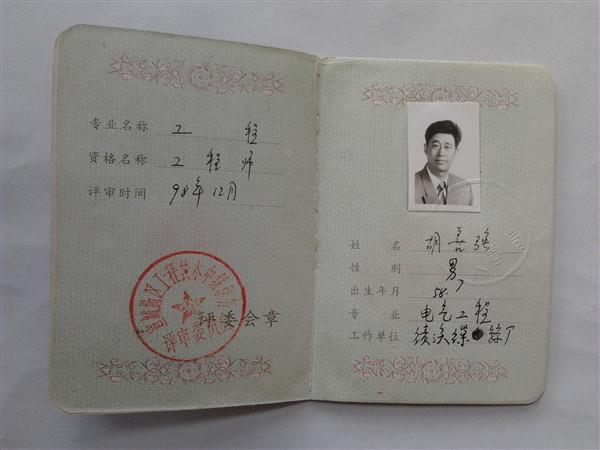 专业名称 工程
资格名称 工程师
评审时间 98年12月
评审委员
评委会章
姓名 胡善强
性别 男
出生年月 58.7
专业 电气工程
工作单位